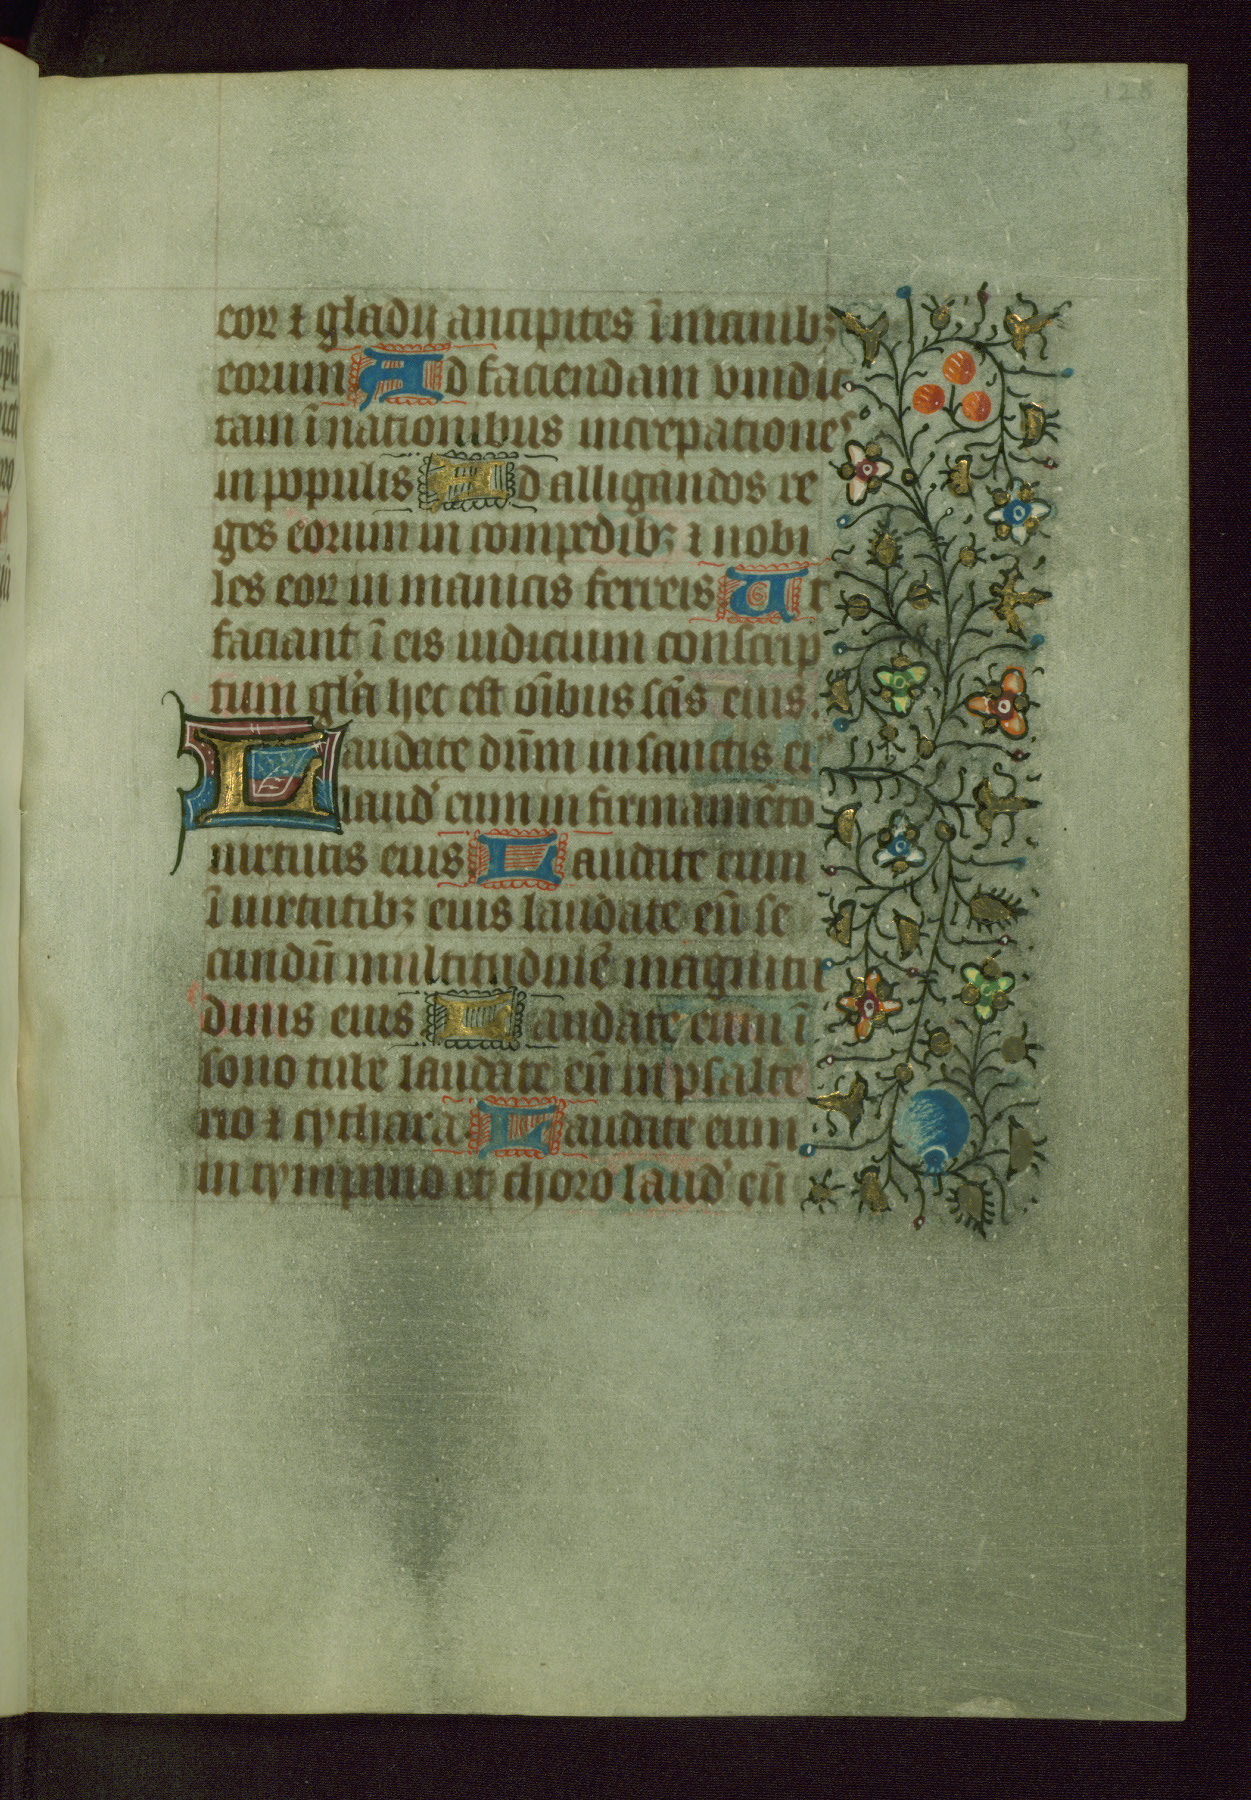 128
33
eoꝝ ⁊ gladii ancipites ī manibꝫ
eorum Ad faciendam vindic
tam ī nationibus increpationes
in populis Ad alligandos re
ges eorum in compedibꝫ ⁊ nobi
les eoꝝ in manicis ferreis Ut
faciant ī eis iudicium conscrip
tum gl'a hec est oībus scīs eius.
Laudate dn̄m in sanctis ei'
laud' eum in firmamēto
uirtutis eius Laudate eum
ī uirtutibꝫ eius laudate eū se
cundū multitudinē magnitu
dinis eius Laudate eum ī
sono tube laudate eū in psalte
rio ⁊ cythara Laudate eum
in tympano et choro laud' eū